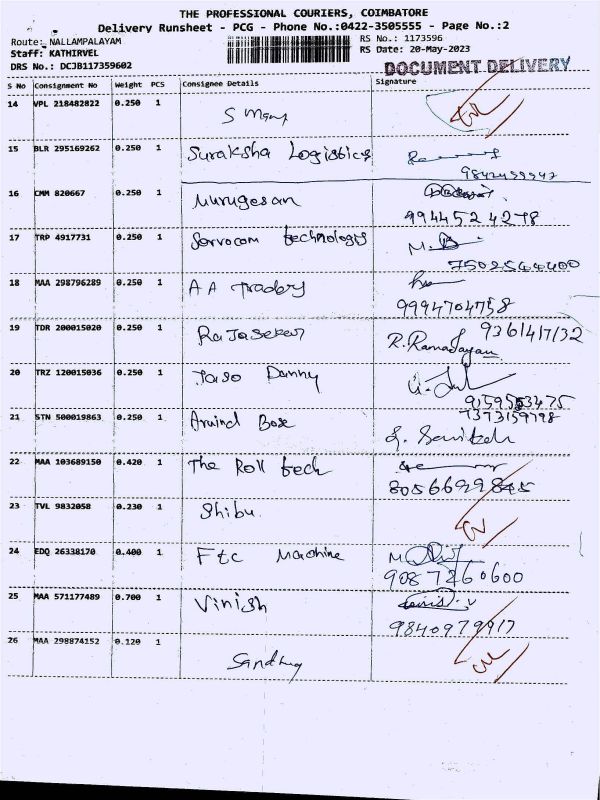 THE PROFESSIONAL COURIERS, COIMBATORE
Delivery Runsheet - PCG - Phone No.:0422-3505555 - Page No.:2
Route: NALLAMPALAYAM
RS No.: 1173596
Staff: KATHIRVEL
RS Date: 20-May-2023
DRS No.: DCJB117359602
DOCUMENT DELIVERY
S No Consignment No Weight PCS Consignee Details Signature
14 VPL 218482822 0.250 1 S Many
15 BLR 295169262 0.250 1 Suraksha Logistics
16 CMM 820667 0.250 1 Murugesan
9944524278
17 TRP 4917731 0.250 1 Servocom technologis
7502544400
18 MAA 298796289 0.250 1 A A traders
9994704758
19 TDR 200015020 0.250 1 RaJaseker 9361417132
R. Ramadayan
20 TRZ 120015036 0.250 1 Jaso Danny
21 STN 500019863 0.250 1 Arvind Bose
22 MAA 103689150 0.420 1 The Roll tech
23 TVL 9832058 0.230 1 Shibu
24 EDQ 26338170 0.400 1 Ftc Machine
9087260600
25 MAA 571177489 0.700 1 Vinish
9840979917
26 MAA 298874152 0.120 1 Sandhiy